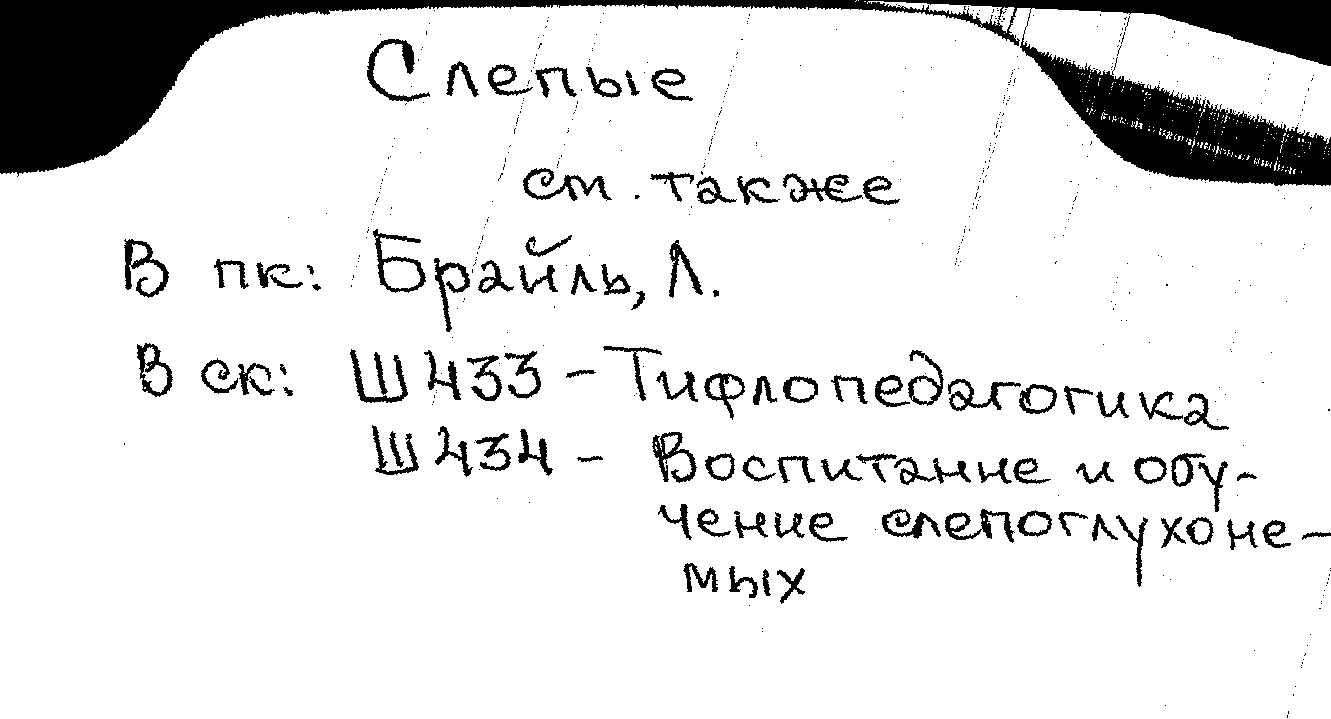 Слепые
см. также
В пк: Брайль, Л.
В ск: Ш433 - Тифлопедагогика
Ш434 - Воспитание и обу-
чение слепоглухоне-
мых